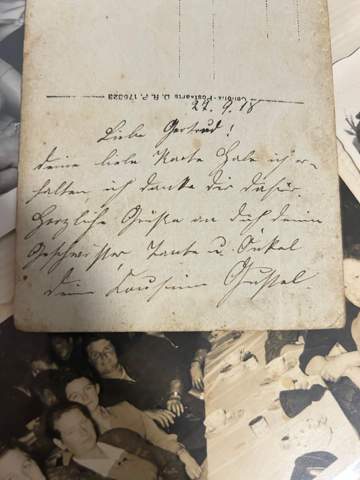 Carolta-Postkarte D. R. P. 176323
22. 9. 18
Liebe Gertrud!
deine liebe Karte habe ich er-
halten, ich danke dir dafür.
Herzliche Grüße an dich deine
Geschwister, Tante u. Onkel
dein Cousine Gustel.